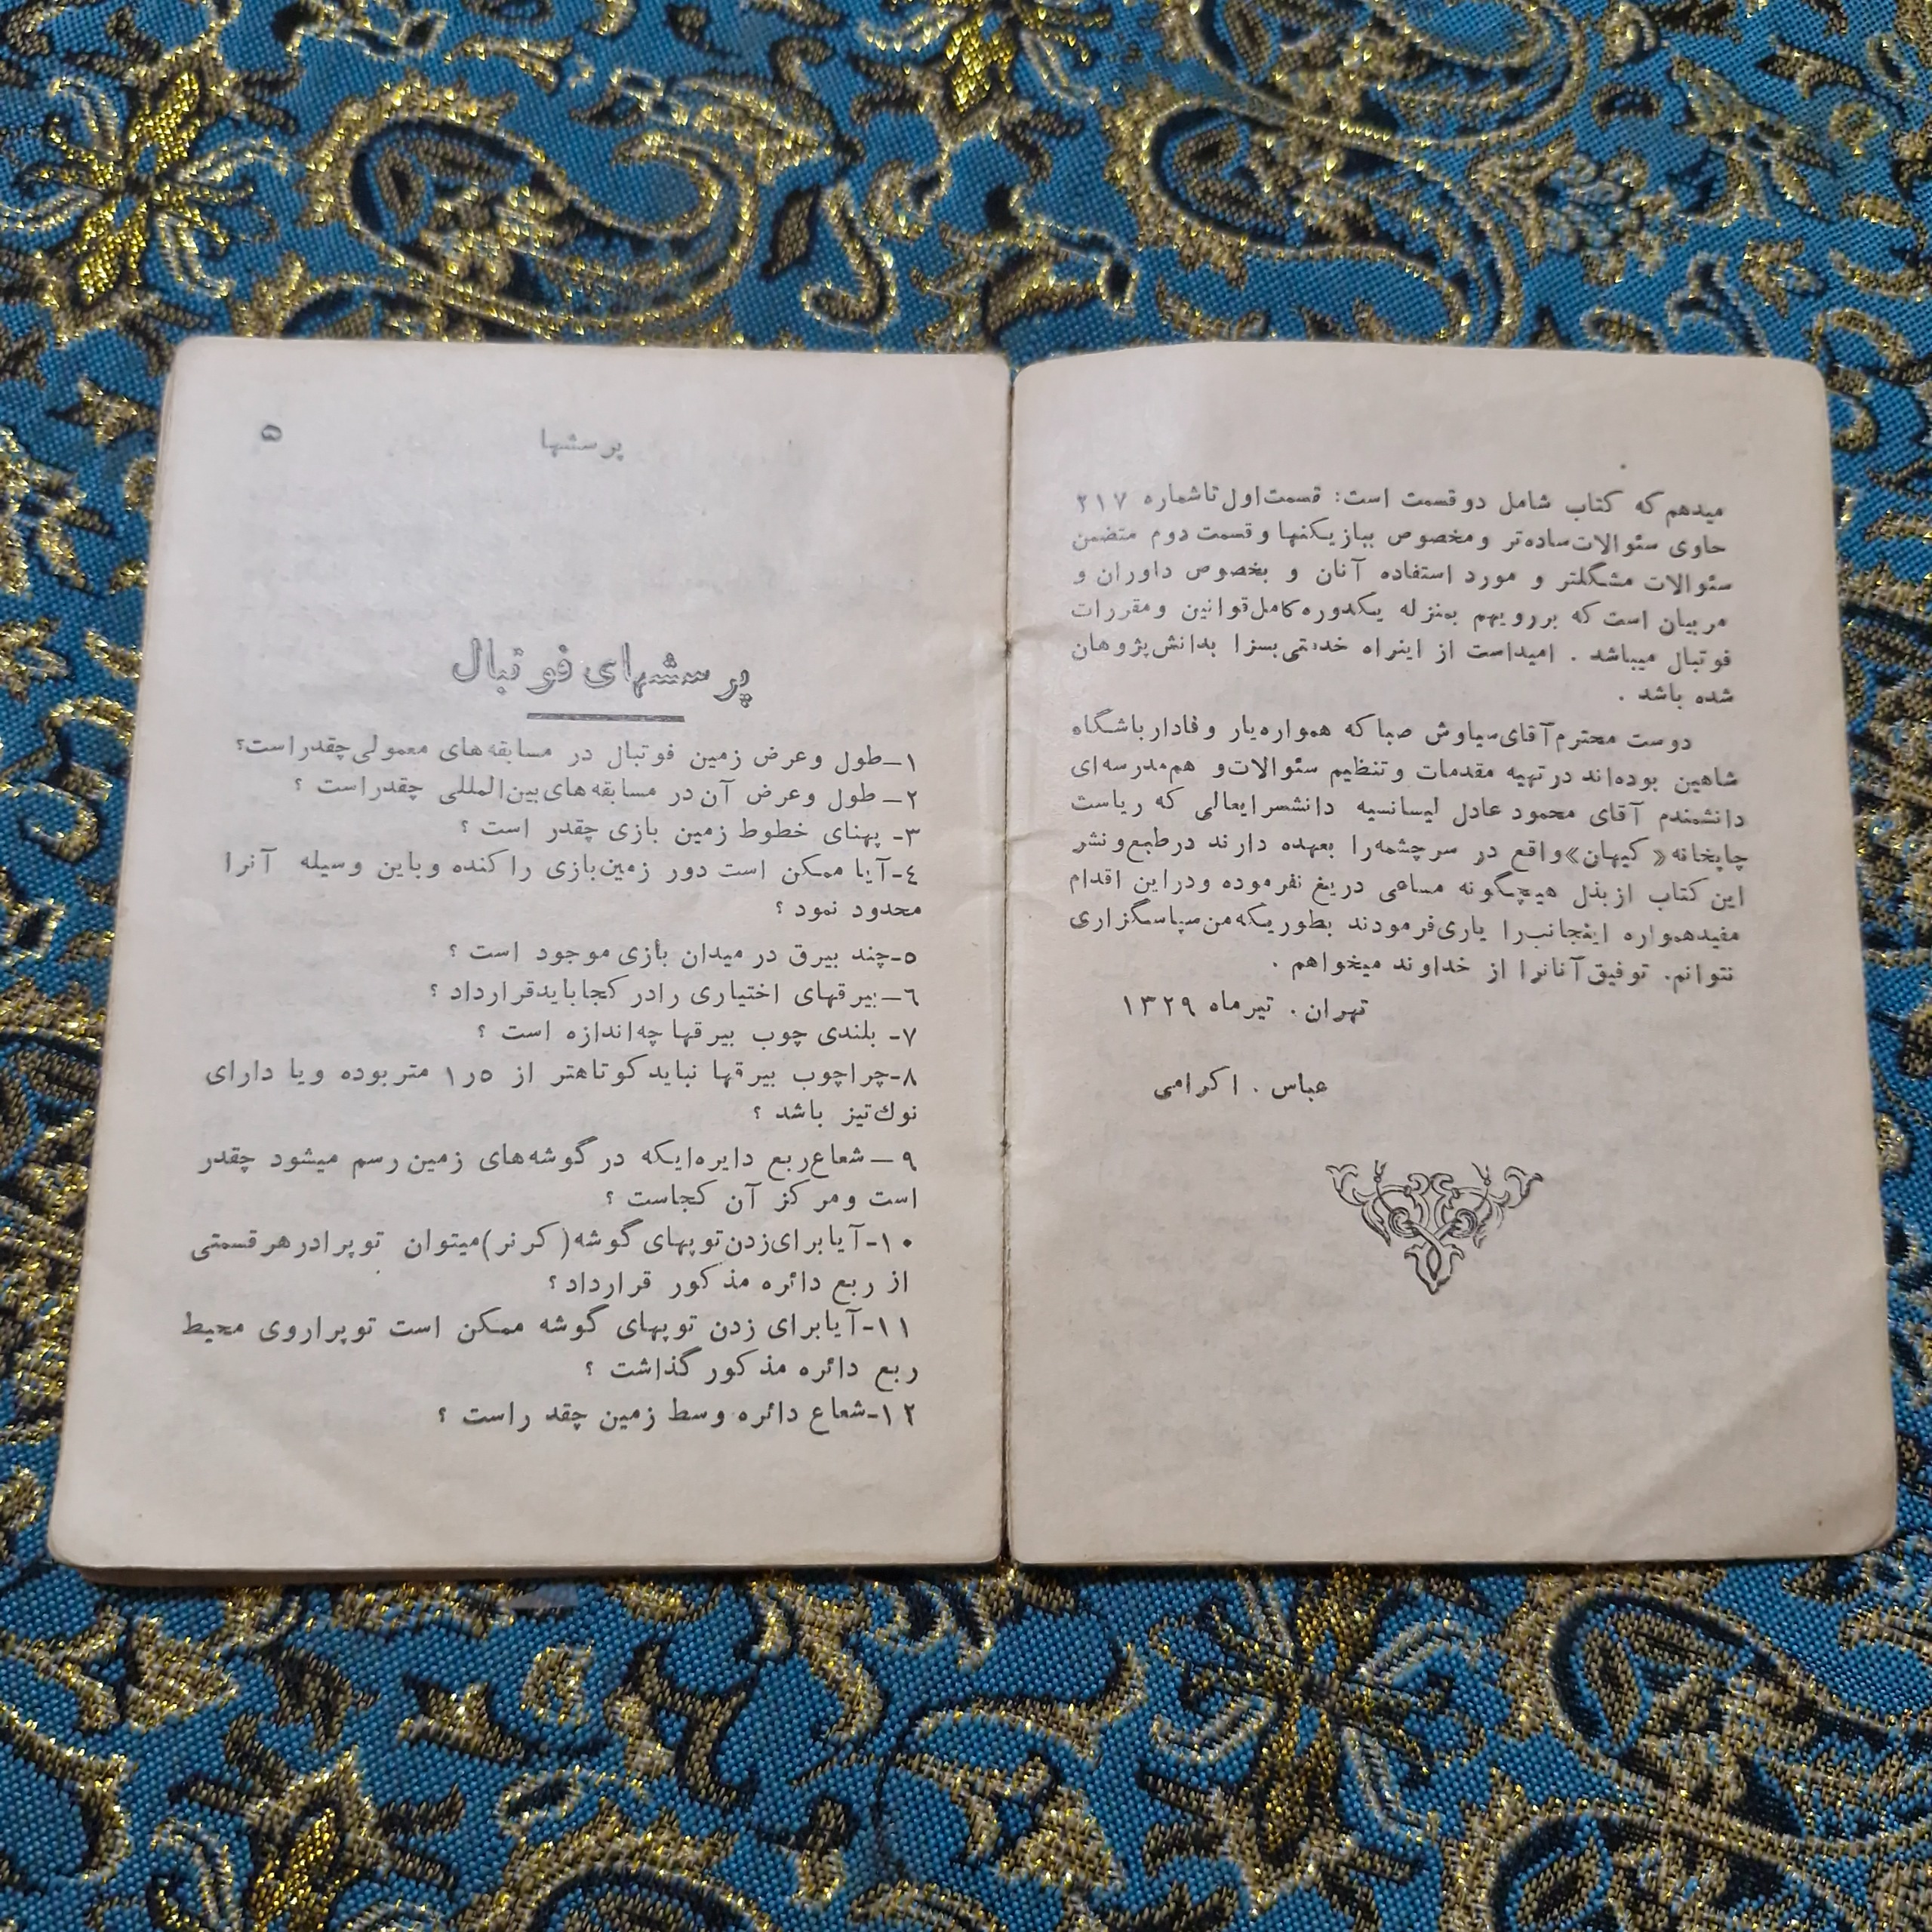 میدهم که کتاب شامل دو قسمت است: قسمت اول تا شماره ۲۱۷
حاوی سئوالات ساده‌تر و مخصوص ببازیکنها و قسمت دوم متضمن
سئوالات مشگلتر و مورد استفاده آنان و بخصوص داوران و
مربیان است که بررویهم بمنزله یکدوره کامل قوانین و مقررات
فوتبال میباشد . امیداست از اینراه خدمتی بسزا بدانش پژوهان
شده باشد .
دوست محترم آقای سیاوش صبا که همواره یار وفادار باشگاه
شاهین بوده‌اند در تهیه مقدمات و تنظیم سئوالات و هم مدرسه‌ای
دانشمندم آقای محمود عادل لیسانسیه دانشسرایعالی که ریاست
چاپخانه «کیهان» واقع در سرچشمه را بعهده دارند در طبع و نشر
این کتاب از بذل هیچگونه مساعی دریغ نفرموده و در این اقدام
مفید همواره اینجانب را یاری فرمودند بطوریکه من سپاسگزاری
نتوانم. توفیق آنانرا از خداوند میخواهم .
تهران . تیرماه ۱۳۲۹
عباس . اکرامی
پرسشها
۵
پرسشهای فوتبال
۱- طول و عرض زمین فوتبال در مسابقه‌های معمولی چقدر است؟
۲- طول و عرض آن در مسابقه‌های بین‌المللی چقدر است ؟
۳- پهنای خطوط زمین بازی چقدر است ؟
٤- آیا ممکن است دور زمین بازی را کنده و باین وسیله آنرا
محدود نمود ؟
٥- چند بیرق در میدان بازی موجود است ؟
٦- بیرقهای اختیاری را در کجا باید قرار داد ؟
۷- بلندی چوب بیرقها چه اندازه است ؟
۸- چرا چوب بیرقها نباید کوتاهتر از ٥ر۱ متر بوده و یا دارای
نوك تیز باشد ؟
۹- شعاع ربع دایره‌ایکه در گوشه‌های زمین رسم میشود چقدر
است و مرکز آن کجاست ؟
۱۰- آیا برای زدن توپهای گوشه (کرنر) میتوان توپ را در هر قسمتی
از ربع دائره مذکور قرار داد ؟
۱۱- آیا برای زدن توپهای گوشه ممکن است توپ را روی محیط
ربع دائره مذکور گذاشت ؟
۱۲- شعاع دائره وسط زمین چقدر است ؟